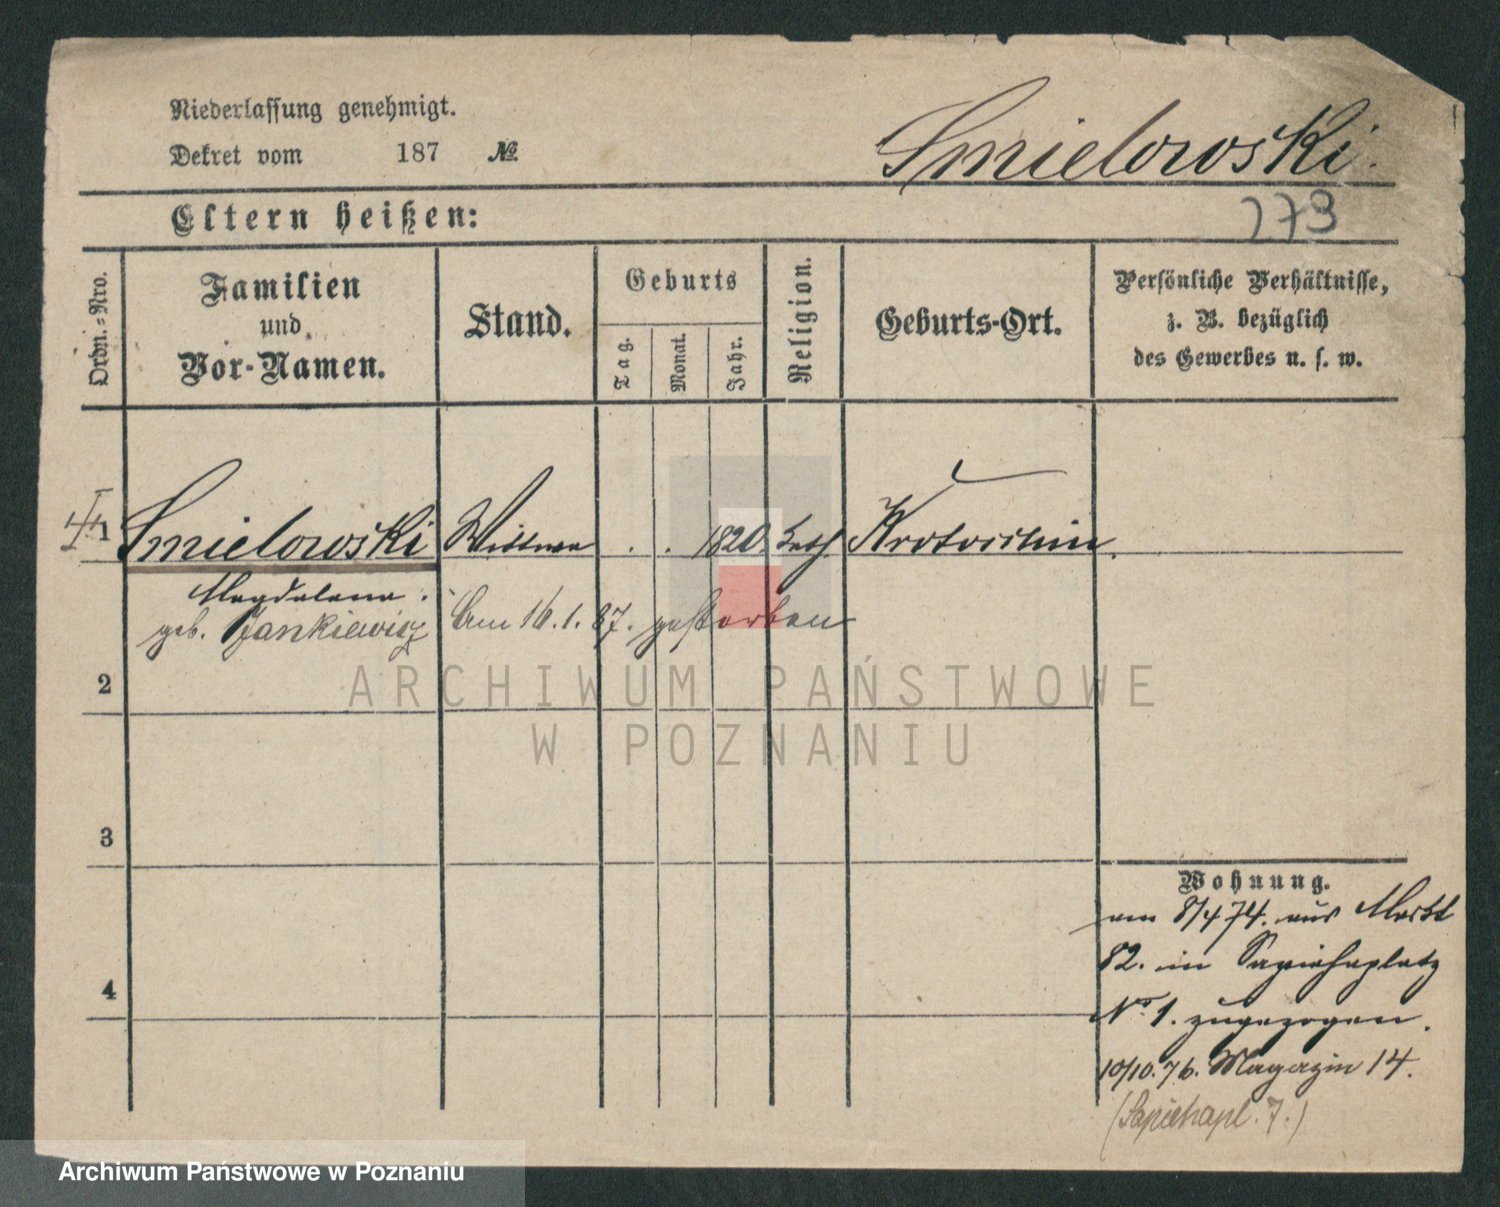 Niederlassung genehmigt.
Dekret vom 187 №
Smielowski.
Eltern heißen:
273
Ordn.-Nro.
Familien
und
Vor-Namen.
Stand.
Geburts
Tag.
Monat.
Jahr.
Religion.
Geburts-Ort.
Persönliche Verhältnisse,
z. B. bezüglich
des Gewerbes u. s. w.
1 Smielowski Wittwe . . 1820 kath. Krotoschin.
Magdalena.
geb. Jankiewicz Am 16.1.87. gestorben
2
ARCHIWUM PAŃSTWOWE
W POZNANIU
3
Wohnung.
am 8/4 74. aus Markt
82. in Sapiehaplatz
No 1. zugezogen.
4
10/10.76. Magazin 14.
(Sapiehapl. 7.)
Archiwum Państwowe w Poznaniu